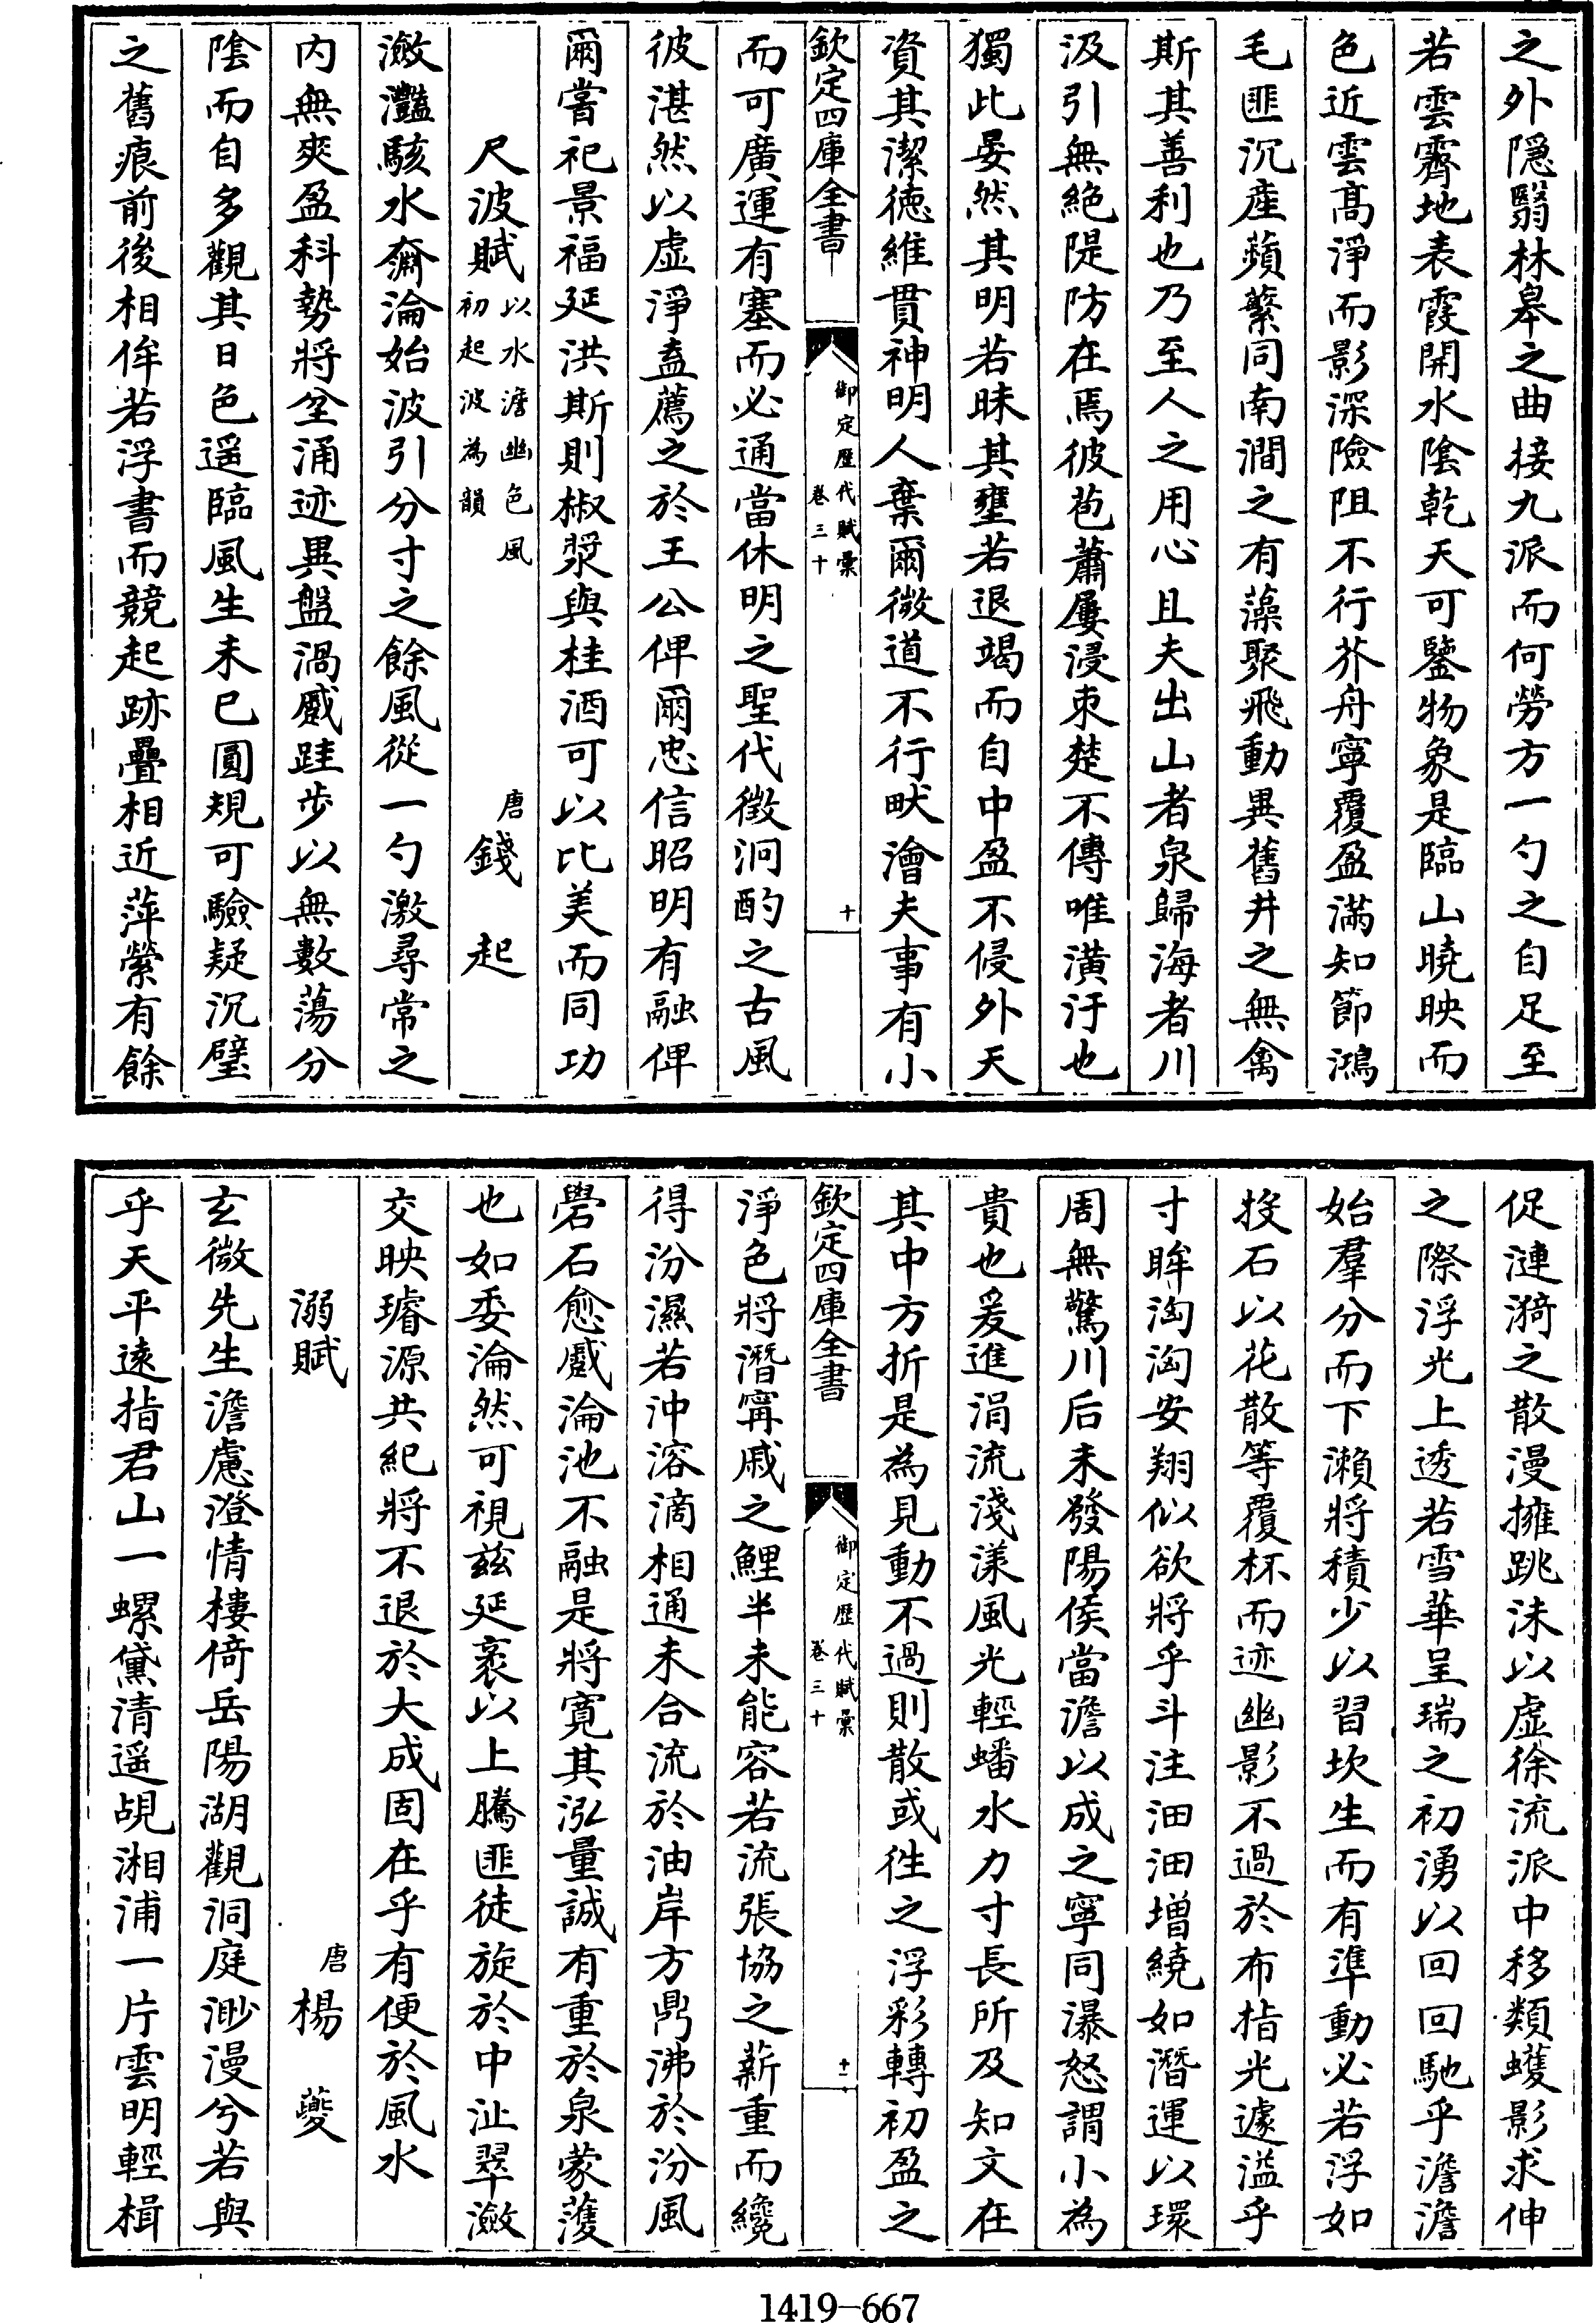 之外隠翳林皋之曲接九派而何勞方一勺之自足至
若雲霽地表霞開水陰乾天可鑒物象是臨山曉映而
色近雲高淨而影深險阻不行芥舟寧覆盈滿知節鴻
毛匪沉產蘋蘩同南澗之有藻聚飛動異舊井之無禽
斯其善利也乃至人之用心且夫出山者泉歸海者川
汲引無絶隄防在焉彼苞蕭屢浸束楚不傳唯潢汙也
獨此晏然其明若昧其壅若退竭而自中盈不侵外天
資其潔德維貫神明人棄爾微道不行畎澮夫事有小
欽定四庫全書
御定歴代賦彚
卷三十
十
而可廣運有塞而必通當休明之聖代徵泂酌之古風
彼湛然以虛淨盍薦之於王公俾爾忠信昭明有融俾
爾嘗祀景福延洪斯則椒漿與桂酒可以比美而同功
尺波賦以水澹幽色風初起波為韻
唐錢起
瀲灩駭水奫淪始波引分寸之餘風從一勺激尋常之
內無爽盈科勢將坌涌迹異盤渦蹙跬步以無數蕩分
陰而自多觀其日色遥臨風生未已圓規可驗疑沉璧
之舊痕前後相侔若浮書而競起跡疊相近萍縈有餘
促漣漪之散漫擁跳沫以虛徐流派中移類蠖影求伸
之際浮光上透若雪華呈瑞之初湧以回回馳乎澹澹
始羣分而下瀨將積少以習坎生而有準動必若浮如
投石以花散等覆杯而迹幽影不過於布指光遽溢乎
寸眸淘淘安翔似欲將乎斗注沺沺增繞如潛運以環
周無驚川后未發陽侯當澹以成之寧同瀑怒謂小為
貴也爰進涓流淺漾風光輕蟠水力寸長所及知文在
其中方折是為見動不過則散或徃之浮彩轉初盈之
欽定四庫全書
御定歴代賦彚
卷三十
十一
淨色將潛寗戚之鯉半未能容若流張協之薪重而纔
得汾濕若沖溶滴相通未合流於油岸方鼎沸於汾風
礐石愈蹙淪池不融是將寛其泓量誠有重於泉蒙蒦
也如委淪然可視兹延袤以上騰匪徒旋於中沚翠瀲
交映璿源共紀將不退於大成固在乎有便於風水
溺賦
唐楊夔
玄微先生澹慮澄情樓倚岳陽湖觀洞庭渺漫兮若與
乎天平逺指君山一螺黛清遥覘湘浦一片雲明輕楫
1419-667